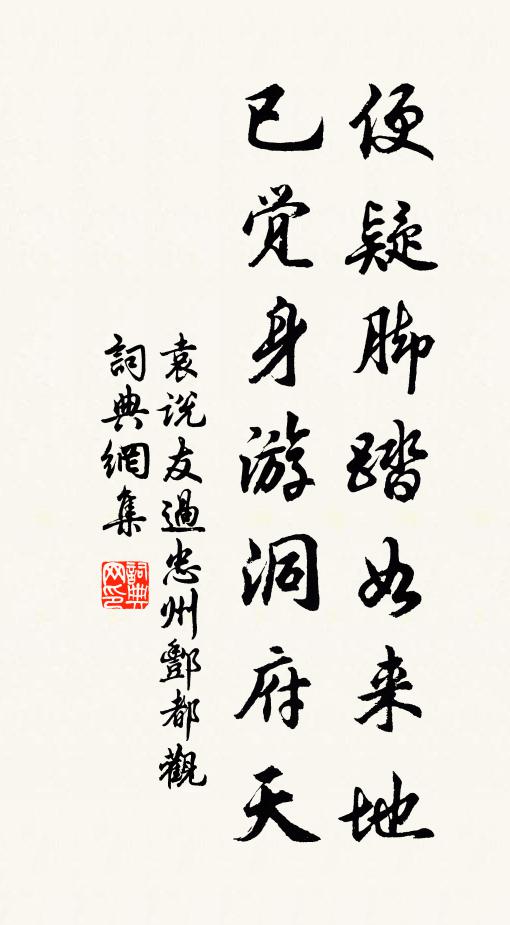 便疑脚踏如来地
已觉身游洞府天
袁说友過忠州酆都觀
詞典網集
詞典网印